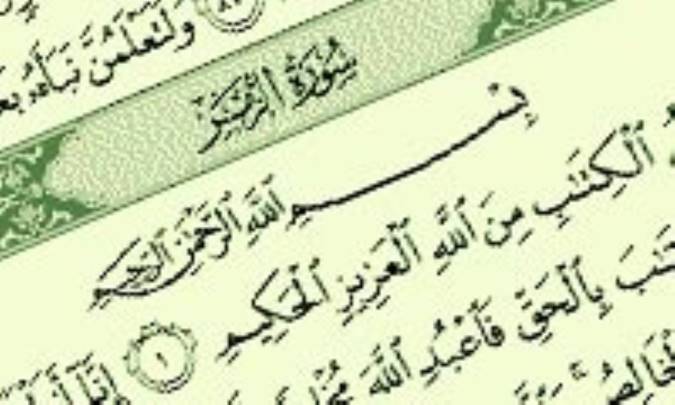 وَلَتَعْلَمُنَّ نَبَأَهُۥ بَعْ
سُورَةُ الزُّمَرِ
بِسْمِ ٱللَّهِ ٱلرَّحْمَٰنِ ٱلرَّحِيمِ
ٱلْكِتَٰبِ مِنَ ٱللَّهِ ٱلْعَزِيزِ ٱلْحَكِيمِ ١ إِنَّآ أَنزَلْ
تَٰبَ بِٱلْحَقِّ فَٱعْبُدِ ٱللَّهَ
ٱلْخَالِصُ ۚ